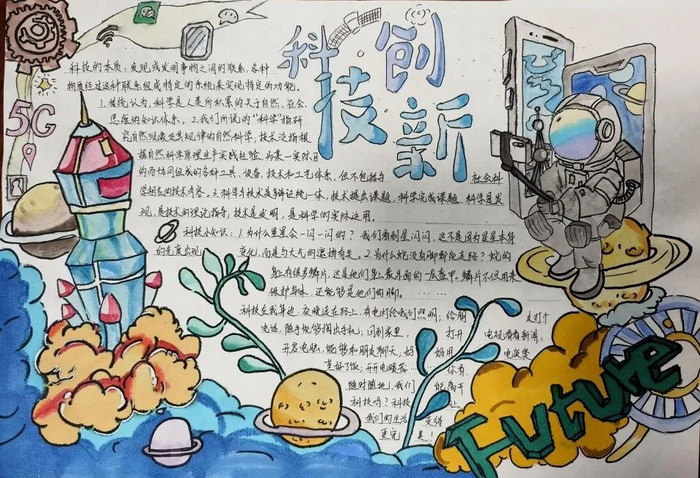 科技创新
5G
科技的本质：发现或发明事物之间的联系，各种
物质经过这种联系组成特定的系统来实现特定的功能。
1.传统认为，科学是人类所积累的关于自然，社会
思维的知识体系。2.我们所说的“科学”指研
究自然现象及其规律的自然科学；技术泛指根
据自然科学原理生产实践经验，为某一实际目
的而协同组成的各种工具、设备、技术和工艺体系，但不包括与 社会科
学相关的技术内容。3.科学与技术是辩证统一体，技术提出课题，科学完成课题，科学是发
现，是技术的理论指导；技术是发明，是科学的实际运用。
科技小知识：1.为什么星星会一闪一闪的？我们看到星闪闪，这不是因为星星本身
的光度出现 变化，而是与大气的遮挡有关。2.为什么蛇没有脚都能走路？蛇的
身上有很多鳞片，这是他们身上最外面的一层盔甲。鳞片不但用来
保护身体，还能够是他们的脚。......
科技在我身边，夜晚走在路上，有电灯给我们照明，给朋 友打个
电话，随手能够掏出手机，回到家里， 打开 电视看看新闻，
开启电脑，能够和朋友聊天，好 好用 电饭煲
煮好了饭，开开电暖器... 你看
随时随地，我们 能离开
科技吗？科技 让
我们的生活 变得
更完 美！
Future